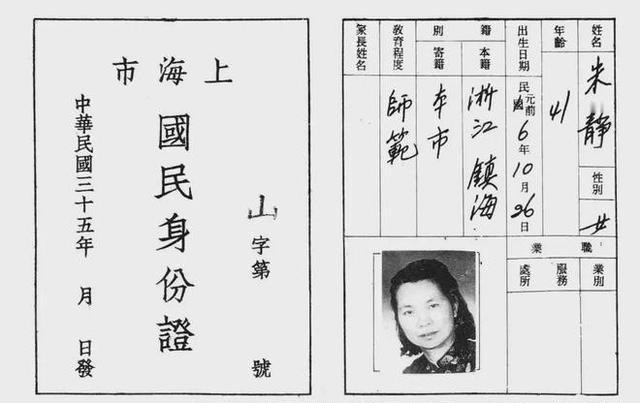 上海市
國民身份證
山字第 號
中華民國三十五年 月 日發
姓名 朱靜 性別 女
年齡 41
出生日期 民國元前 6年10月26日
籍別
本籍 浙江鎮海
寄籍 本市
教育程度 師範
家長姓名
職業
業別
服務處所